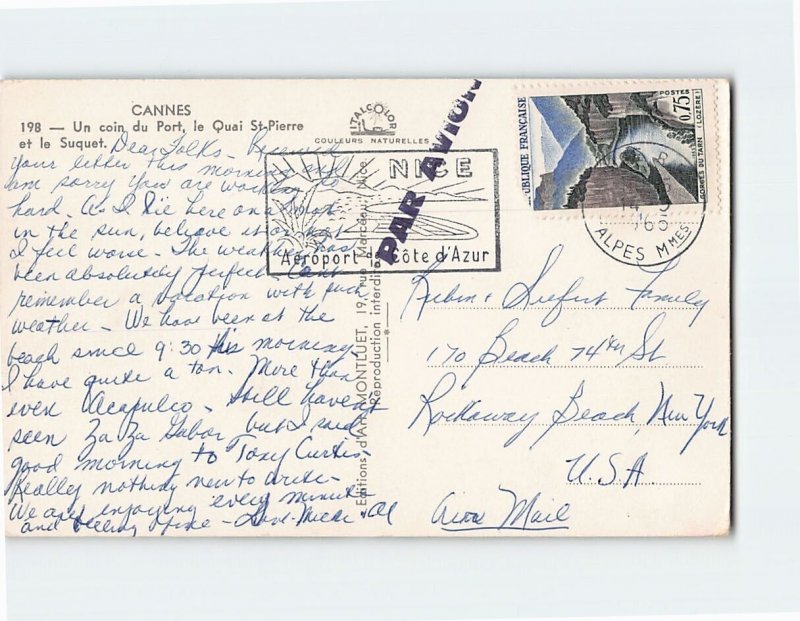 CANNES
198 — Un coin du Port, le Quai St-Pierre
et le Suquet.
ITALCOLOR
COULEURS NATURELLES
Dear Folks - Received
your letter this morning and
am sorry you are working so
hard. As I lie here on a mat
in the sun, believe it or not
I feel worse. The weather has
been absolutely perfect. Can't
remember a vacation with such
weather - We have been at the
beach since 9:30 this morning
I have quite a tan. More than
even Acapulco - Still haven't
seen Za Za Gabor but I said
good morning to Tony Curtis -
Really nothing new to write -
We are enjoying every minute
and feeling fine - Love - Al
NICE
Aéroport de Côte d'Azur
PAR AVION
Editions d'Art MONTLUET, 19, rue Marceau, Nice
Reproduction interdite
RÉPUBLIQUE FRANÇAISE
POSTES
0,75
GORGES DU TARN (LOZÈRE)
ALPES MMES
Rubin & Siefert Family
170 Beach 74th St
Rockaway Beach, New York
U.S.A.
Air Mail